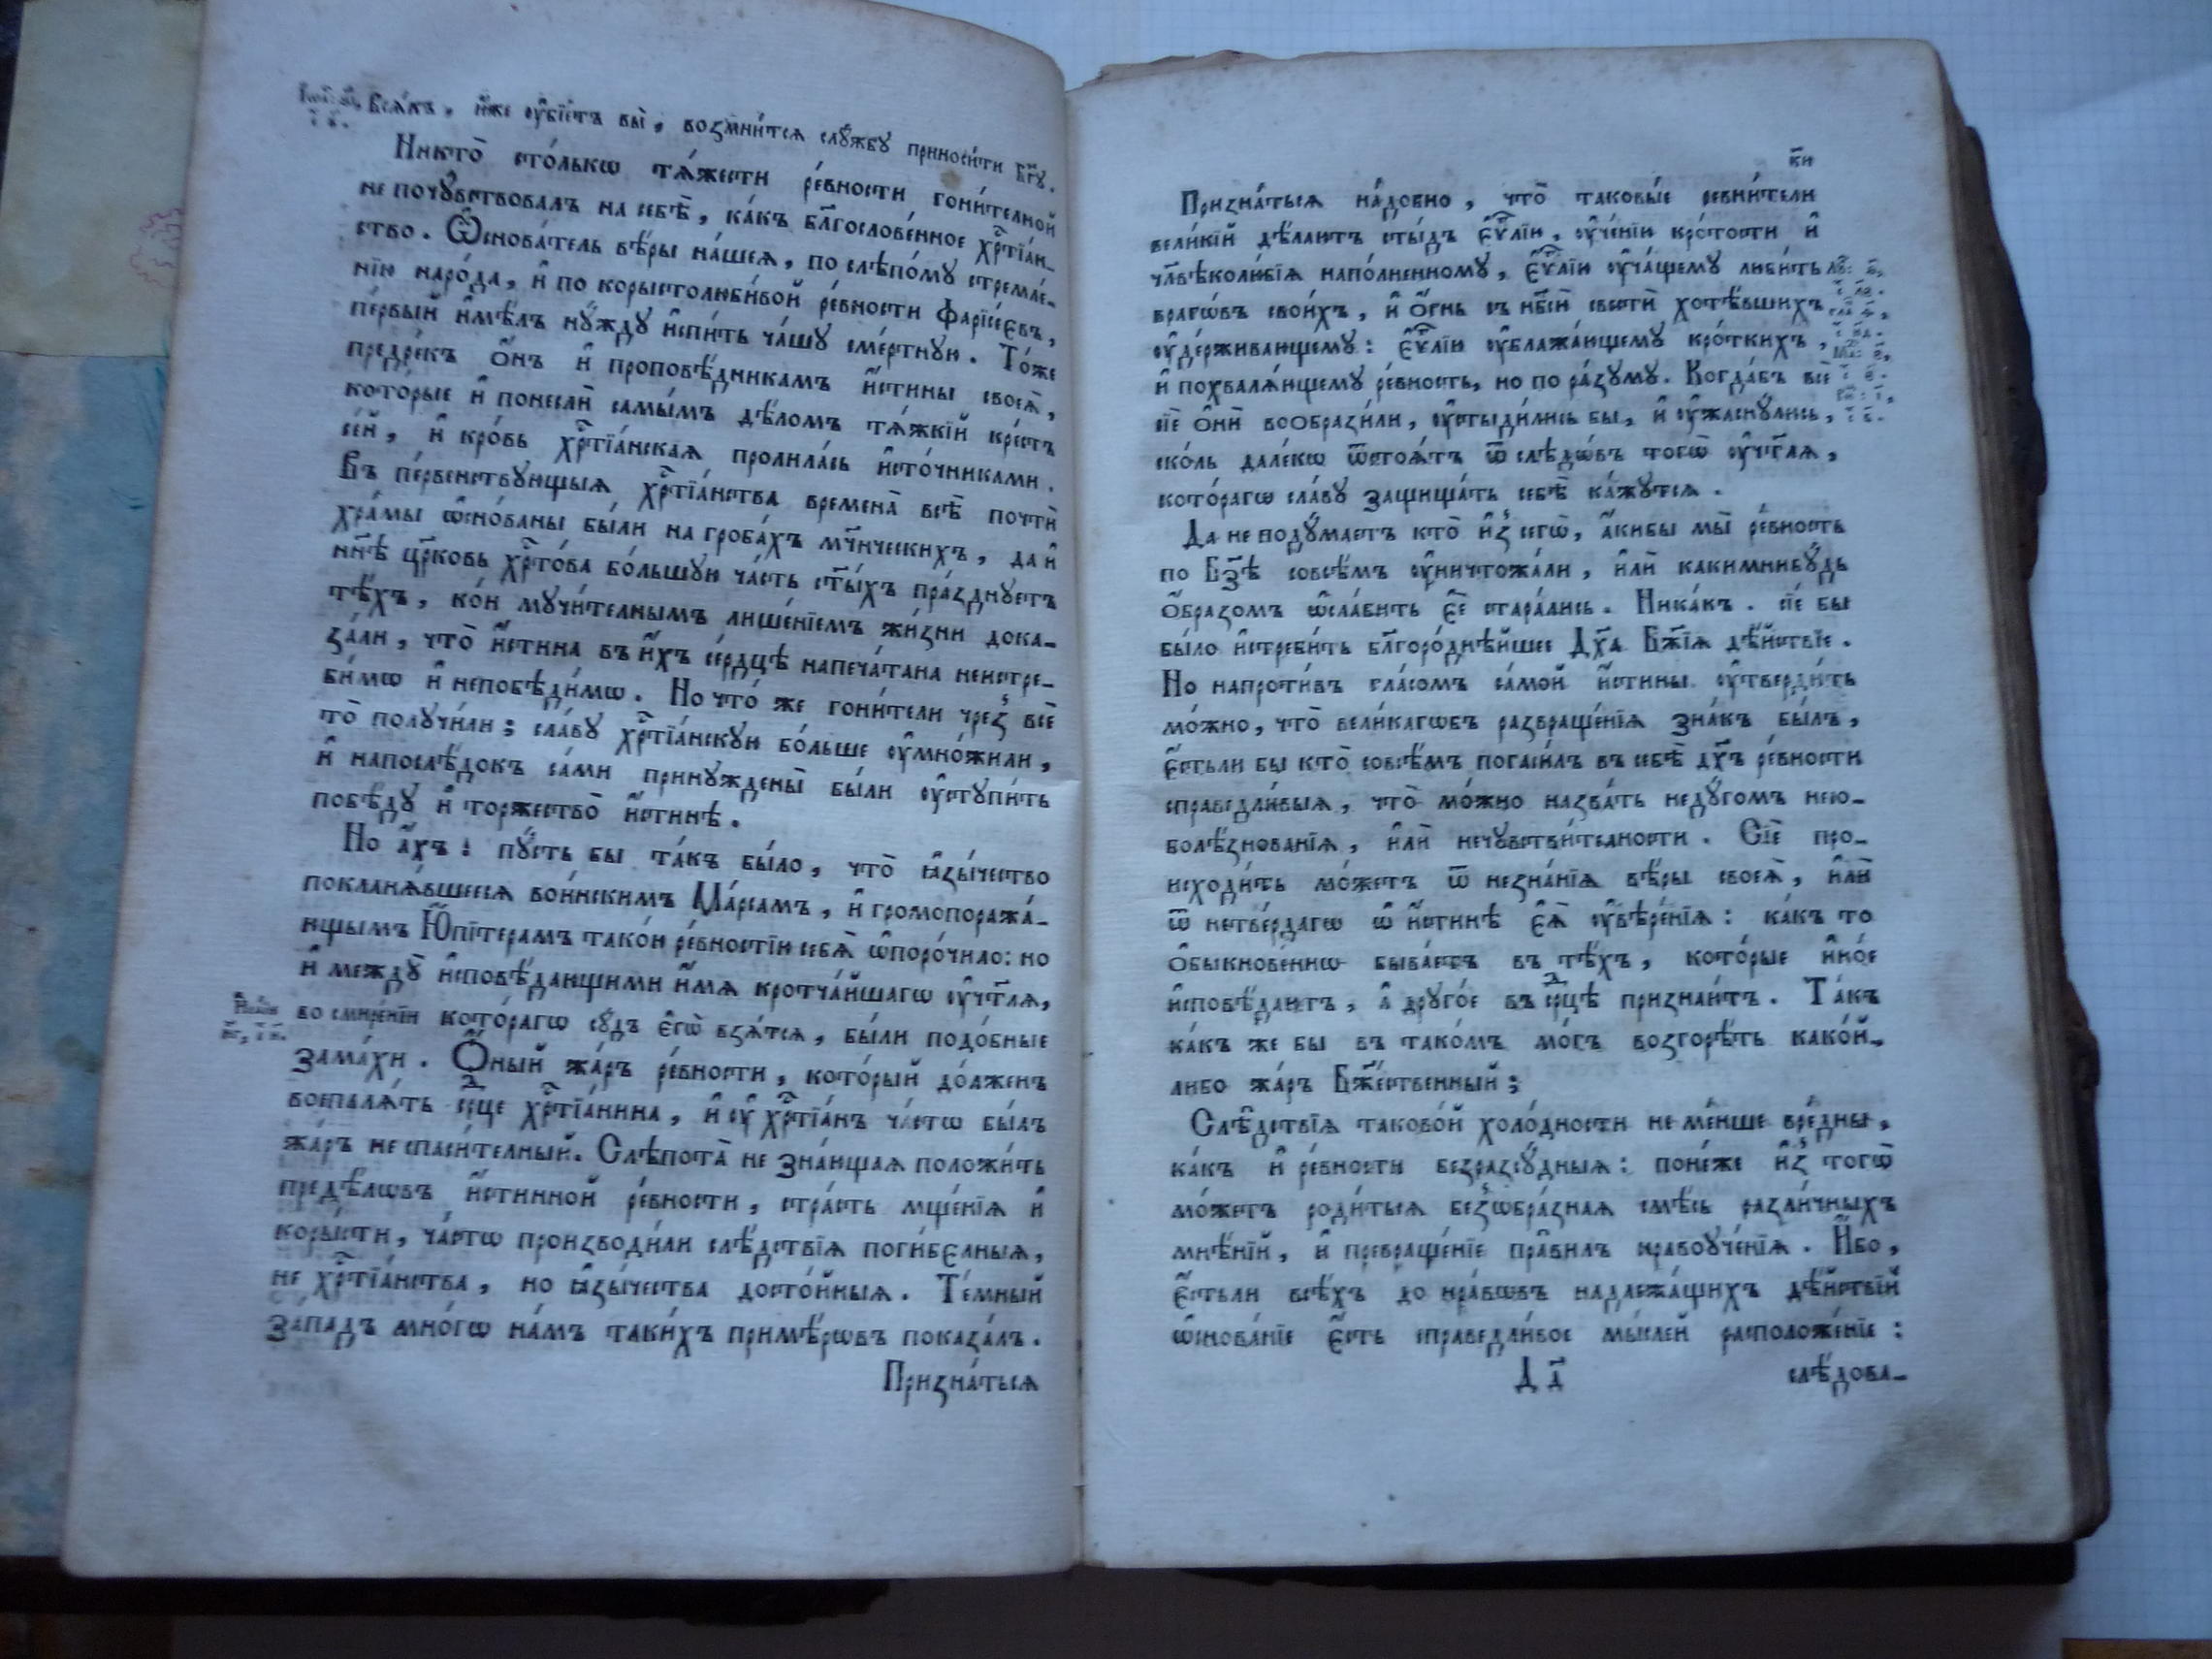 Всѧ́къ, и҆́же ᲂу҆бїе́тъ вы̀, возмни́тсѧ слꙋ́жбꙋ приноси́ти Бг҃ꙋ.
Никто̀ сто́лькѡ тѧ́жести ре́вности гони́телной
не почꙋ́вствовалъ на себѣ̀, ка́къ бл҃гослове́нное хрⷭ҇тїа́н-
ство. Ѡ҆снова́тель вѣ́ры на́шеѧ, по слѣпо́мꙋ стремле́-
нїю наро́да, и҆ по корыстолюби́вой ре́вности Фарїсе́євъ,
пе́рвый и҆мѣ́лъ нꙋ́ждꙋ и҆спи́ть ча́шꙋ сме́ртнꙋю. То́же
предре́къ ѻ҆́нъ и҆ проповѣ́дникамъ и҆́стины своеѧ̀,
кото́рые и҆ понеслѝ самы́мъ дѣ́ломъ тѧ́жкїй кре́стъ
се́й, и҆ кро́вь хрⷭ҇тїа́нскаѧ пролила́сь и҆сто́чниками.
Въ пе́рвенствꙋющыѧ хрⷭ҇тїа́нства времена̀ всѣ̀ почтѝ
хра́мы ѡ҆сно́ваны бы́ли на гроба́хъ мч҃нческихъ, да и҆
нн҃ѣ цр҃ковь хрⷭ҇то́ва бо́льшꙋю ча́сть ст҃ы́хъ пра́зднꙋетъ
тѣ́хъ, ко́и мꙋчи́телнымъ лише́нїемъ жи́зни дока-
за́ли, что̀ и҆́стина въ и҆́хъ се́рдцѣ напеча́тана неистре-
би́мѡ и҆ непобѣди́мѡ. Но что́ же гони́тели чрез̾ всѐ
то̀ получи́ли; сла́вꙋ хрⷭ҇тїа́нскꙋю бо́льше ᲂу҆мно́жили,
и҆ напослѣ́докъ са́ми принꙋждены̀ бы́ли ᲂу҆стꙋпи́ть
побѣ́дꙋ и҆ торжество̀ и҆́стинѣ.
Но а҆́хъ! пꙋ́сть бы та́къ бы́ло, что̀ ꙗ҆зы́чество
покланѧ́вшеесѧ вои́нскимъ Ма́рсамъ, и҆ громопоража́-
ющымъ Ю҆пі́терамъ тако́ю ре́вностїю себѧ̀ ѡ҆поро́чило: но
и҆ междꙋ̀ и҆сповѣ́дающими и҆́мѧ кротча́йшагѡ ᲂу҆чт҃лѧ,
во смире́нїи кото́рагѡ сꙋ́дъ є҆гѡ̀ взѧ́тсѧ, бы́ли подо́бные
зама́хи. Ѻ҆́ный жа́ръ ре́вности, кото́рый до́лженъ
воспалѧ́ть срⷣце хрⷭ҇тїа́нина, и҆ ᲂу҆ хрⷭ҇тїа́нъ ча́стѡ бы́лъ
жа́ръ не спаси́телный. Слѣпота̀ не зна́ющаѧ положи́ть
предѣ́лѡвъ и҆́стинной ре́вности, стра́сть мще́нїѧ и҆
коры́сти, ча́стѡ производи́ли слѣ́дствїѧ поги́бєлныѧ,
не хрⷭ҇тїа́нства, но ꙗ҆зы́чества досто́йныѧ. Те́мный
за́падъ мно́гѡ на́мъ таки́хъ примѣ́рѡвъ показа́лъ.
Призна́тьсѧ
к҃и
Призна́тьсѧ на́добно, что̀ таковы́е ревни́тели
вели́кїй дѣ́лаютъ сты́дъ є҆ѵⷢ҇лїю, ᲂу҆че́нїю кро́тости и҆
чл҃вѣколю́бїѧ напо́лненномꙋ, є҆ѵⷢ҇лїю ᲂу҆ча́щемꙋ люби́ть
врагѡ́въ свои́хъ, и҆ ѻ҆́гнь съ нб҃сѝ свестѝ хотѣ́вшихъ
ᲂу҆де́рживающемꙋ: є҆ѵⷢ҇лїю ᲂу҆блажа́ющемꙋ кро́ткихъ,
и҆ похвалѧ́ющемꙋ ре́вность, но по ра́зꙋмꙋ. Когда́бъ всѐ
сїѐ ѻ҆нѝ вообрази́ли, ᲂу҆стыди́лись бы, и҆ ᲂу҆жаснꙋ́лись,
ско́ль дале́кѡ ѿстоѧ́тъ ѿ слѣдѡ́въ тогѡ̀ ᲂу҆чт҃лѧ,
кото́рагѡ сла́вꙋ защища́ть себѣ̀ ка́жꙋтсѧ.
Да не подꙋ́маетъ кто̀ и҆з̾ сегѡ̀, а҆́кибы мы̀ ре́вность
по Бз҃ѣ совсѣ́мъ ᲂу҆ничтожа́ли, и҆лѝ какимнибꙋ́дь
ѻ҆́бразомъ ѡ҆сла́бить є҆ѐ стара́лись. Ника́къ. сїе́ бы
бы́ло и҆стреби́ть бл҃горо́днѣйшее Дх҃а Бж҃їѧ дѣ́йствїе.
Но напроти́въ гла́сомъ са́мой и҆́стины ᲂу҆тверди́ть
мо́жно, что̀ вели́кагѡбъ развраще́нїѧ зна́къ бы́лъ,
є҆́стьли бы кто̀ совсѣ́мъ погаси́лъ въ себѣ̀ дх҃ъ ре́вности
справедли́выѧ, что̀ мо́жно назва́ть недꙋ́гомъ несо-
болѣ́знованїѧ, и҆лѝ нечꙋвстви́телности. Сїѐ про-
исходи́ть мо́жетъ ѿ незна́нїѧ вѣ́ры своеѧ̀, и҆лѝ
ѿ нетве́рдагѡ ѡ҆ и҆́стинѣ є҆ѧ̀ ᲂу҆вѣре́нїѧ: ка́къ то
ѻ҆быкнове́ннѡ быва́етъ въ тѣ́хъ, кото́рые и҆но́е
и҆сповѣ́даютъ, а҆ дрꙋго́е въ срⷣцѣ признаю́тъ. Та́къ
ка́къ же бы въ тако́мъ мо́гъ возгорѣ́ть како́й-
либо жа́ръ Бж҃е́ственный;
Слѣ̑дствїѧ таково́й холо́дности не ме́нше врє́дны,
ка́къ и҆ ре́вности безразсꙋ́дныѧ: поне́же и҆з̾ тогѡ̀
мо́жетъ роди́тьсѧ без̾ѡбра́знаѧ смѣ́сь разли́чныхъ
мнѣ́нїй, и҆ превраще́нїе пра́вилъ нравоꙋче́нїѧ. И҆́бо,
є҆́стьли всѣ́хъ до нра́вѡвъ надлежа́щихъ дѣ́йствїй
ѡ҆снова́нїе є҆́сть справедли́вое мы́слей расположе́нїе:
Д д҃
слѣ́дова-